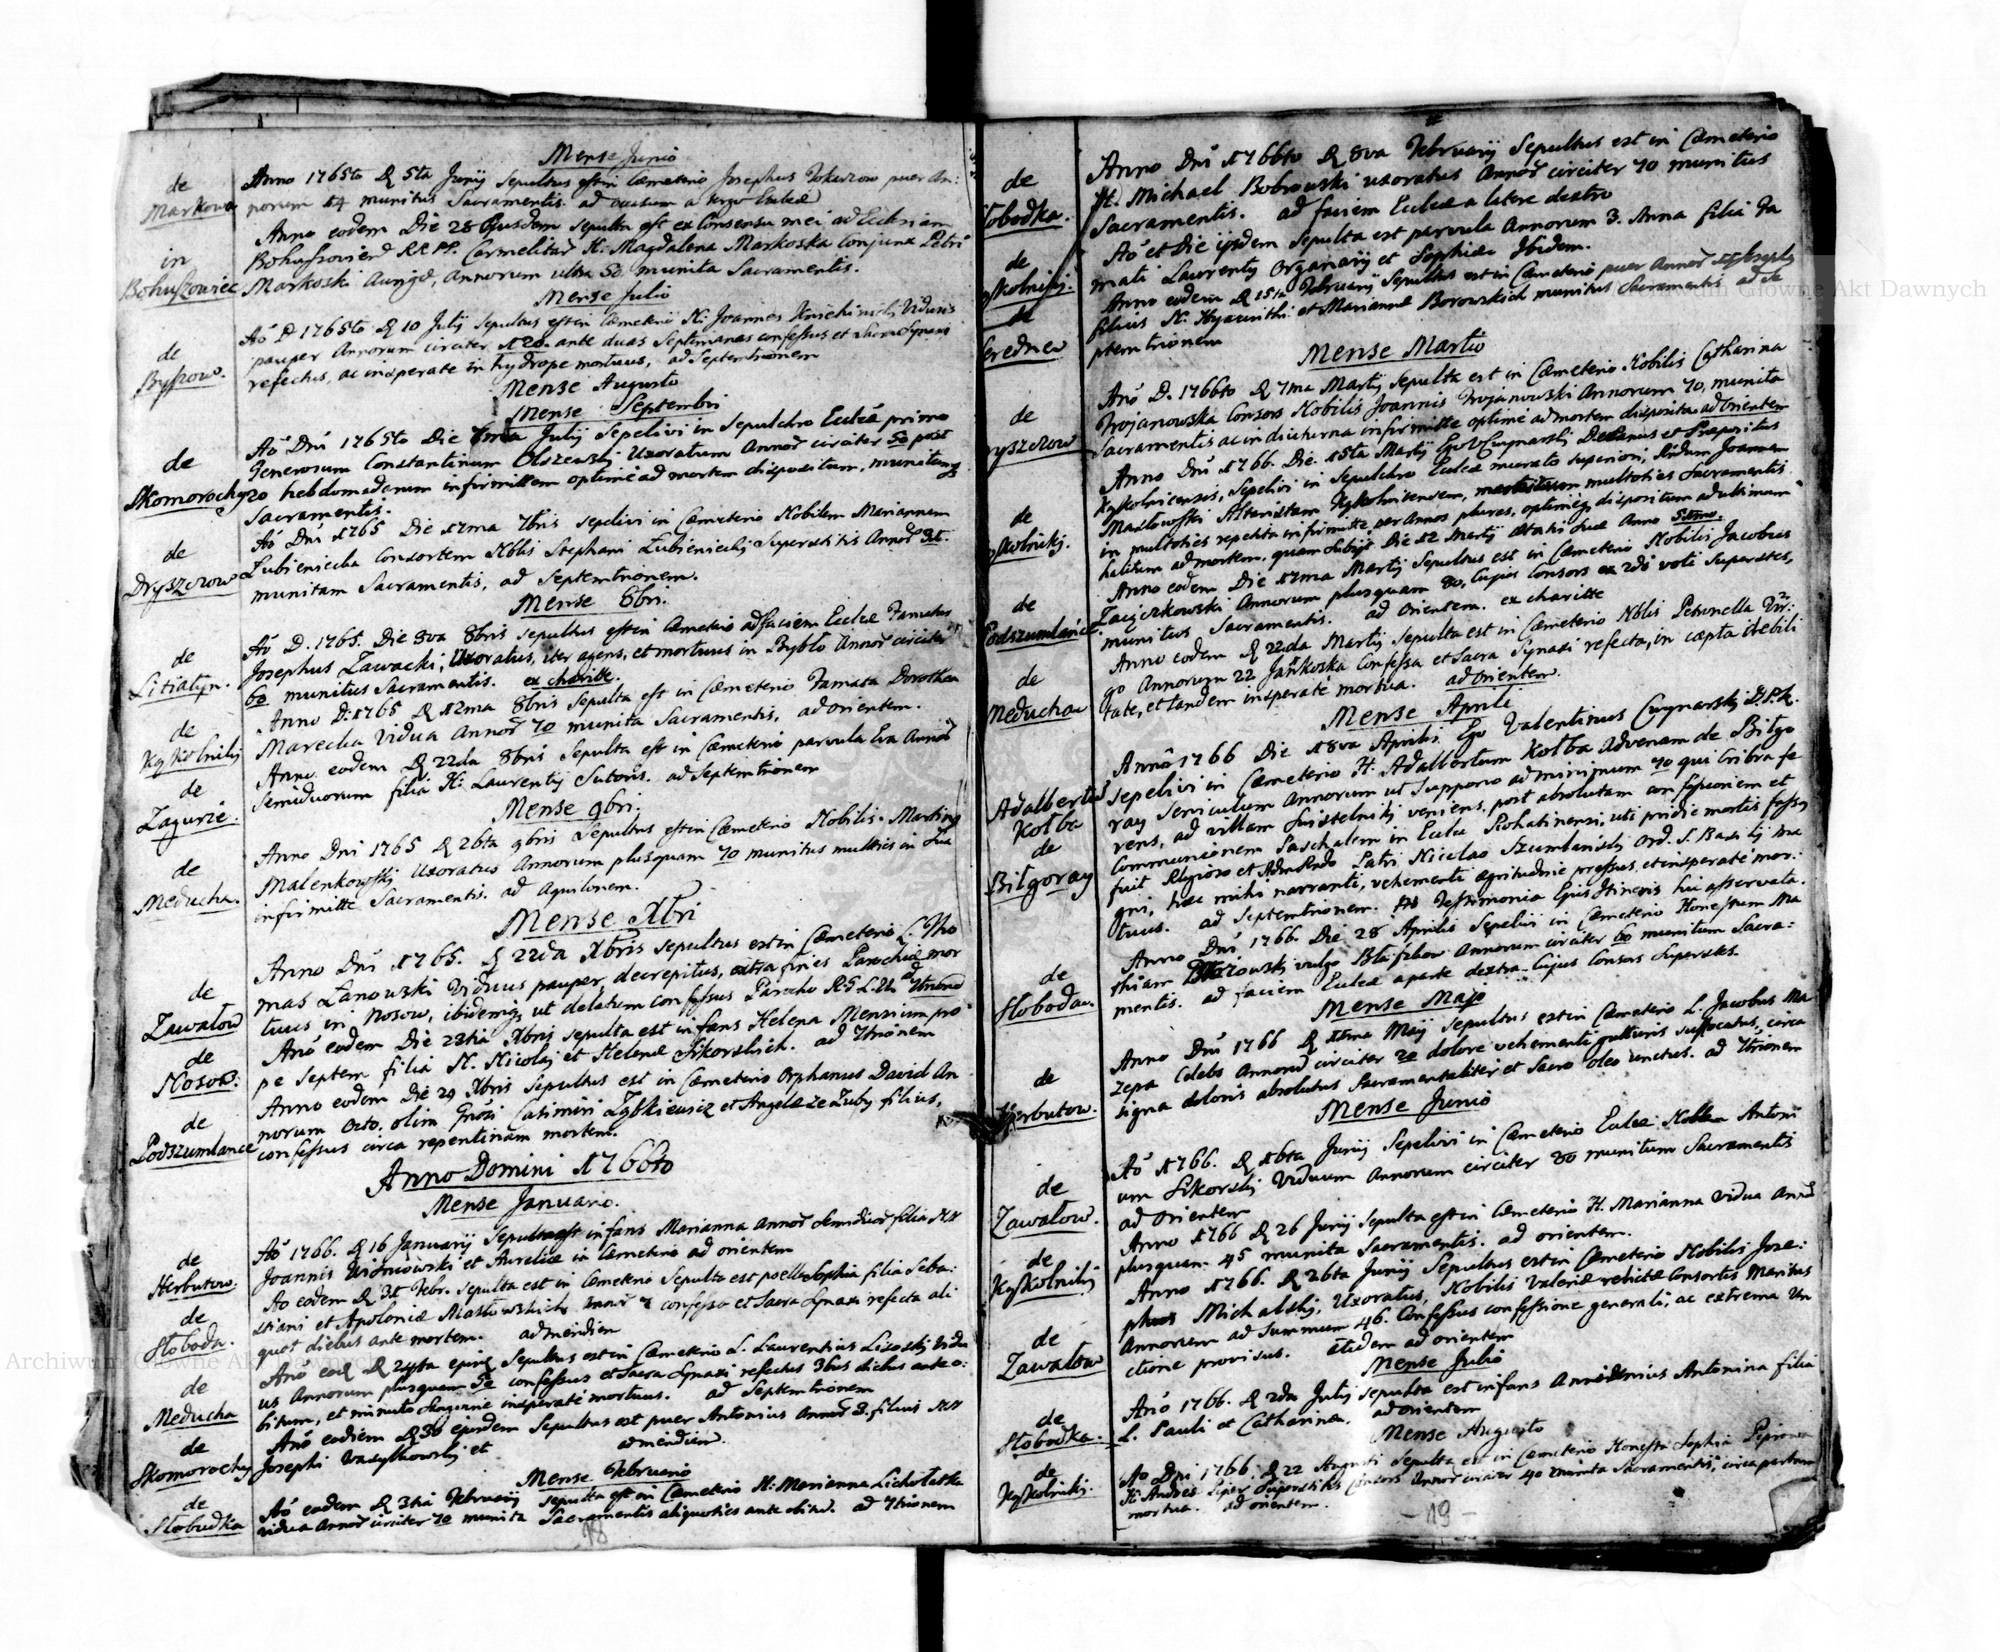 Mense Junio
de
Markowa
Anno 1765to D 5ta Junij Sepultus est in Cæmeterio Josephus Tokarzow puer An:
norum 14 munitus Sacramentis. ad occasum a tergo Eccleæ
in
Bohuszowiec
Anno eodem Die 28 Ejusdem sepulta est ex Consensu mei ad Eccliam
RR.PP. Carmelitar H: Magdalena Markoska Conjunx Petri
Markoski Aurigæ, Annorum ultra 50 munita Sacramentis.
Mense Julio
de
Byszow.
Ao D 1765to D 10 Julij Sepultus est in Cæmeterio H: Joannes Viduus
pauper Annorum circiter ante duas Septimanas confessus et Sacra Synaxi
refectus, ac insperate in hydrope mortuus, ad Septemtrionem
Mense Augusto
Mense Septembri
de
Skomorochy
Ao Dni 1765to Die Julij Sepelivi in Sepulchro Eccleæ primo
Generosum Constantinum Olszewskj Uxoratum Annor circiter 50 post
20 hebdomadarum infirmittem optime ad mortem dispositum, munitumq
Sacramentis.
de
Dryszczow
Ao Dni 1765 Die 17ma 7bris sepelivi in Cæmeterio Nobilem Mariannam
Łubieniecka Consortem Nblis Stephani Łubienieckj Superstitis Annor 31.
munitam Sacramentis, ad Septemtrionem.
Mense 8bri.
de
Litiatyn.
Ao D. 1765. Die 8va 8bris sepultus est in Cæmeterio ad faciem Eccleæ Famatus
Josephus Zawacki, Uxoratus, iter agens, et mortuus in Bybło Annor circiter
60 munitus Sacramentis. ex charitte.
de
Kąkolnikj
Anno D: 1765 D 12ma 8bris Sepulta est in Cæmeterio Famata Dorothea
Marecka Vidua Annor 70 munita Sacramentis, ad orientem.
de
Zagurie.
Anno eodem D 22da 8bris Sepulta est in Cæmeterio parvula Eva Annor
Semiduorum filia H: Laurentij Sutoris. ad Septemtrionem
Mense 9bri.
de
Meducha.
Anno Dni 1765 D 26ta 9bris Sepultus est in Cæmeterio Nobilis Martinus
Malenkowskj Uxoratus Annorum plusquam 70 munitus multties in sua
infirmitte Sacramentis. ad Aquilonem.
Mense Xbri
de
Zawałow
Anno Dni 1765. D 22da Xbris sepultus est in Cæmeterio L. Tho
mas Łanowski Viduus pauper, decrepitus, extra fines Parochiæ mor
tuus in Nosow, ibidemq ut delatum confessus Parocho
de
Nosow:
Ano eodem Die 23tia Xbris sepulta est infans Helena Mensium pro
pe Septem filia N. Nicolaj et Helenæ Sikorskich. ad 7trionem
de
Podszumlance
Anno eodem Die 29 Xbris Sepultus est in Cæmeterio Orphanus David An
norum Octo. olim Gnosi Casimiri et Angela ze Zuby filius,
confessus circa repentinam mortem.
Anno Domini 1766to
Mense Januario.
de
Herbutow.
Ao 1766. D 16 Januarij Sepulta est infans Marianna Annor Semiduor filia NN
Joannis Wisniowski et Aureliæ in Cæmeterio ad orientem
de
Słoboda.
Ao eodem D Febr. sepulta est in Cæmeterio Sepulta est poella Sophia filia Seba:
stiani et Apoloniæ Annor 7 confessa et Sacra Synaxi refecta ali
quot diebus ante mortem. ad meridiem
de
Meducha
Ano eod D 24ta Sepultus est in Cæmeterio L. Laurentius Lisoskj Vidu
us Annorum plusquam 50 confessus et Sacra Synaxi refectus 3bus diebus ante o:
bitum, et minuto Sanguine insperate mortuus. ad Septemtrionem
de
Skomorochy
Ano eodem D 30 ejusdem Sepultus est puer Antonius Annor 3. filius NN
Josephi Wasylkowskj et ad meridiem.
Mense Februario
de
Słobudka
Ao eodem D 3tia Februarij sepulta est in Cæmeterio H: Marianna Lichołatka
vidua Annor circiter 70 munita Sacramentis aliquoties ante obitu. ad 7trionem
18
de
Słobodka.
Anno Dni 1766to D 8va Februarij Sepultus est in Cæmeterio
H. Michael Bobrowski uxoratus Annor circiter 70 munitus
Sacramentis. ad faciem Eccleæ a latere dextro
de
Kąkolnikj.
Ao et Die ijsdem Sepulta est parvula Annorum 3. Anna filia Fa
mati Laurentij Organarij et Sophiæ Ibidem.
de
Seredne
Anno eodem D 15ta Februarij Sepultus est in Cæmeterio puer Annor Joseph
filius N. Hyacinthi et Mariannæ Borowskich munitus Sacramentis ad Se
ptemtrionem
Mense Martio
de
Dryszczow
Ano D. 1766to D 7ma Martij Sepulta est in Cæmeterio Nobilis Catharina
Trojanowska Consors Nobilis Joannis Trojanowski Annorum 70, munita
Sacramentis ac in diuturna infirmitte optime ad mortem disposita. ad Orientem
de
Kąkolnikj.
Anno Dni 1766. Die 15ta Martij Ego V. Cwynarskj Decanus et Præpositus
Kąkolnicensis, Sepelivi in Sepulchro Eccleæ murato superiori, Rndum Joannem
Masłowski Altaristam Kąkolnicensem, multoties Sacramentis
in multoties repetita infirmitte per Annos plures, optimeq dispositum ad ultimum
halitum ad mortem. quam subijt Die 12 Martij ætatis suæ Anno
de
Podszumlance
Anno eodem Die 17ma Martij Sepultus est in Cæmeterio Nobilis Jacobus
Zaiączkowski Annorum plusquam 80, Cujus Consors ex 2di voti superstes,
munitus Sacramentis. ad orientem. ex charitte
de
Meducha
Anno eodem D 22da Martij Sepulta est in Cæmeterio Nblis Petronella Vir:
go Annorum 22 Jankoska Confessa et Sacra Synaxi refecta, in capta debili
tate, et tandem insperate mortua. ad orientem.
Mense Aprili
Adalbertus
Kołba
de
Biłgoray
Anno 1766 Die 18va Aprilis Ego Valentinus Cwynarskj D.P.K.
Sepelivi in Cæmeterio H. Adalbertum Kołba Advenam de Biłgo
ray Seniculum Annorum ut suppono ad minimum 70 qui cribra fe
rens, ad villam veniens, post absolutam confessionem et
Communionem Paschalem in Eccla Rohatinensi, uti pridie mortis fassus
fuit Religioso et Admrndo Patri Nicolao Szumlanskj Ord. S. Basilij ma
gni, hæc mihi narranti, vehementi ægritudine pressus, et insperate mor:
tuus. ad Septemtrionem. Testimonia Ejus Itineris hic asservata.
de
Słoboda.
Anno Dni 1766. Die 28 Aprilis Sepelivi in Cæmeterio Honestum Ma
thiam vulgo Annorum circiter 60 munitum Sacra:
mentis. ad faciem Eccleæ a parte dextra. Cujus Consors Superstes.
Mense Majo
de
Herbutow.
Anno Dni 1766 D Maij sepultus est in Cæmeterio L. Jacobus Ma
zepa Cælebs Annor circiter 20 dolore vehementi gutturis suffocatus, circa
signa doloris absolutus Sacramentaliter et Sacro oleo unctus. ad 7trionem
Mense Junio
de
Zawałow.
Ao 1766. D 16ta Junij Sepelivi in Cæmeterio Eccleæ Nblem Antoni
um Sikorskj Viduum Annorum circiter 80 munitum Sacramentis
ad orientem
de
Kąkolnikj
Anno 1766 D 26 Junij sepulta est in Cæmeterio H. Marianna vidua Annor
plusquam 45 munita Sacramentis. ad orientem.
de
Zawałow
Anno 1766. D 26ta Junij Sepultus est in Cæmeterio Nobilis Jose:
phus Michalskj, Uxoratus, Nobilis Valeriæ relictæ Consortis Maritus
Annorum ad summum 46. Confessus confessione generali, ac extrema Un
ctione provisus. itidem ad orientem
Mense Julio
de
Słobodka.
Ano 1766. D 2da Julij sepulta est infans Antonina filia
L. Pauli et Catharinæ. ad orientem
Mense Augusto
de
Kąkolnikj.
Ao Dni 1766. D 22 Augusti sepulta est in Cæmeterio Honesta Sophia Pipiowa
H: Andreæ Piper Superstitis Consors Annor circiter 40 munita Sacramentis, circa partum
mortua. ad orientem.
- 19 -
Archiwum Główne Akt Dawnych
Archiwum Główne Akt Dawnych